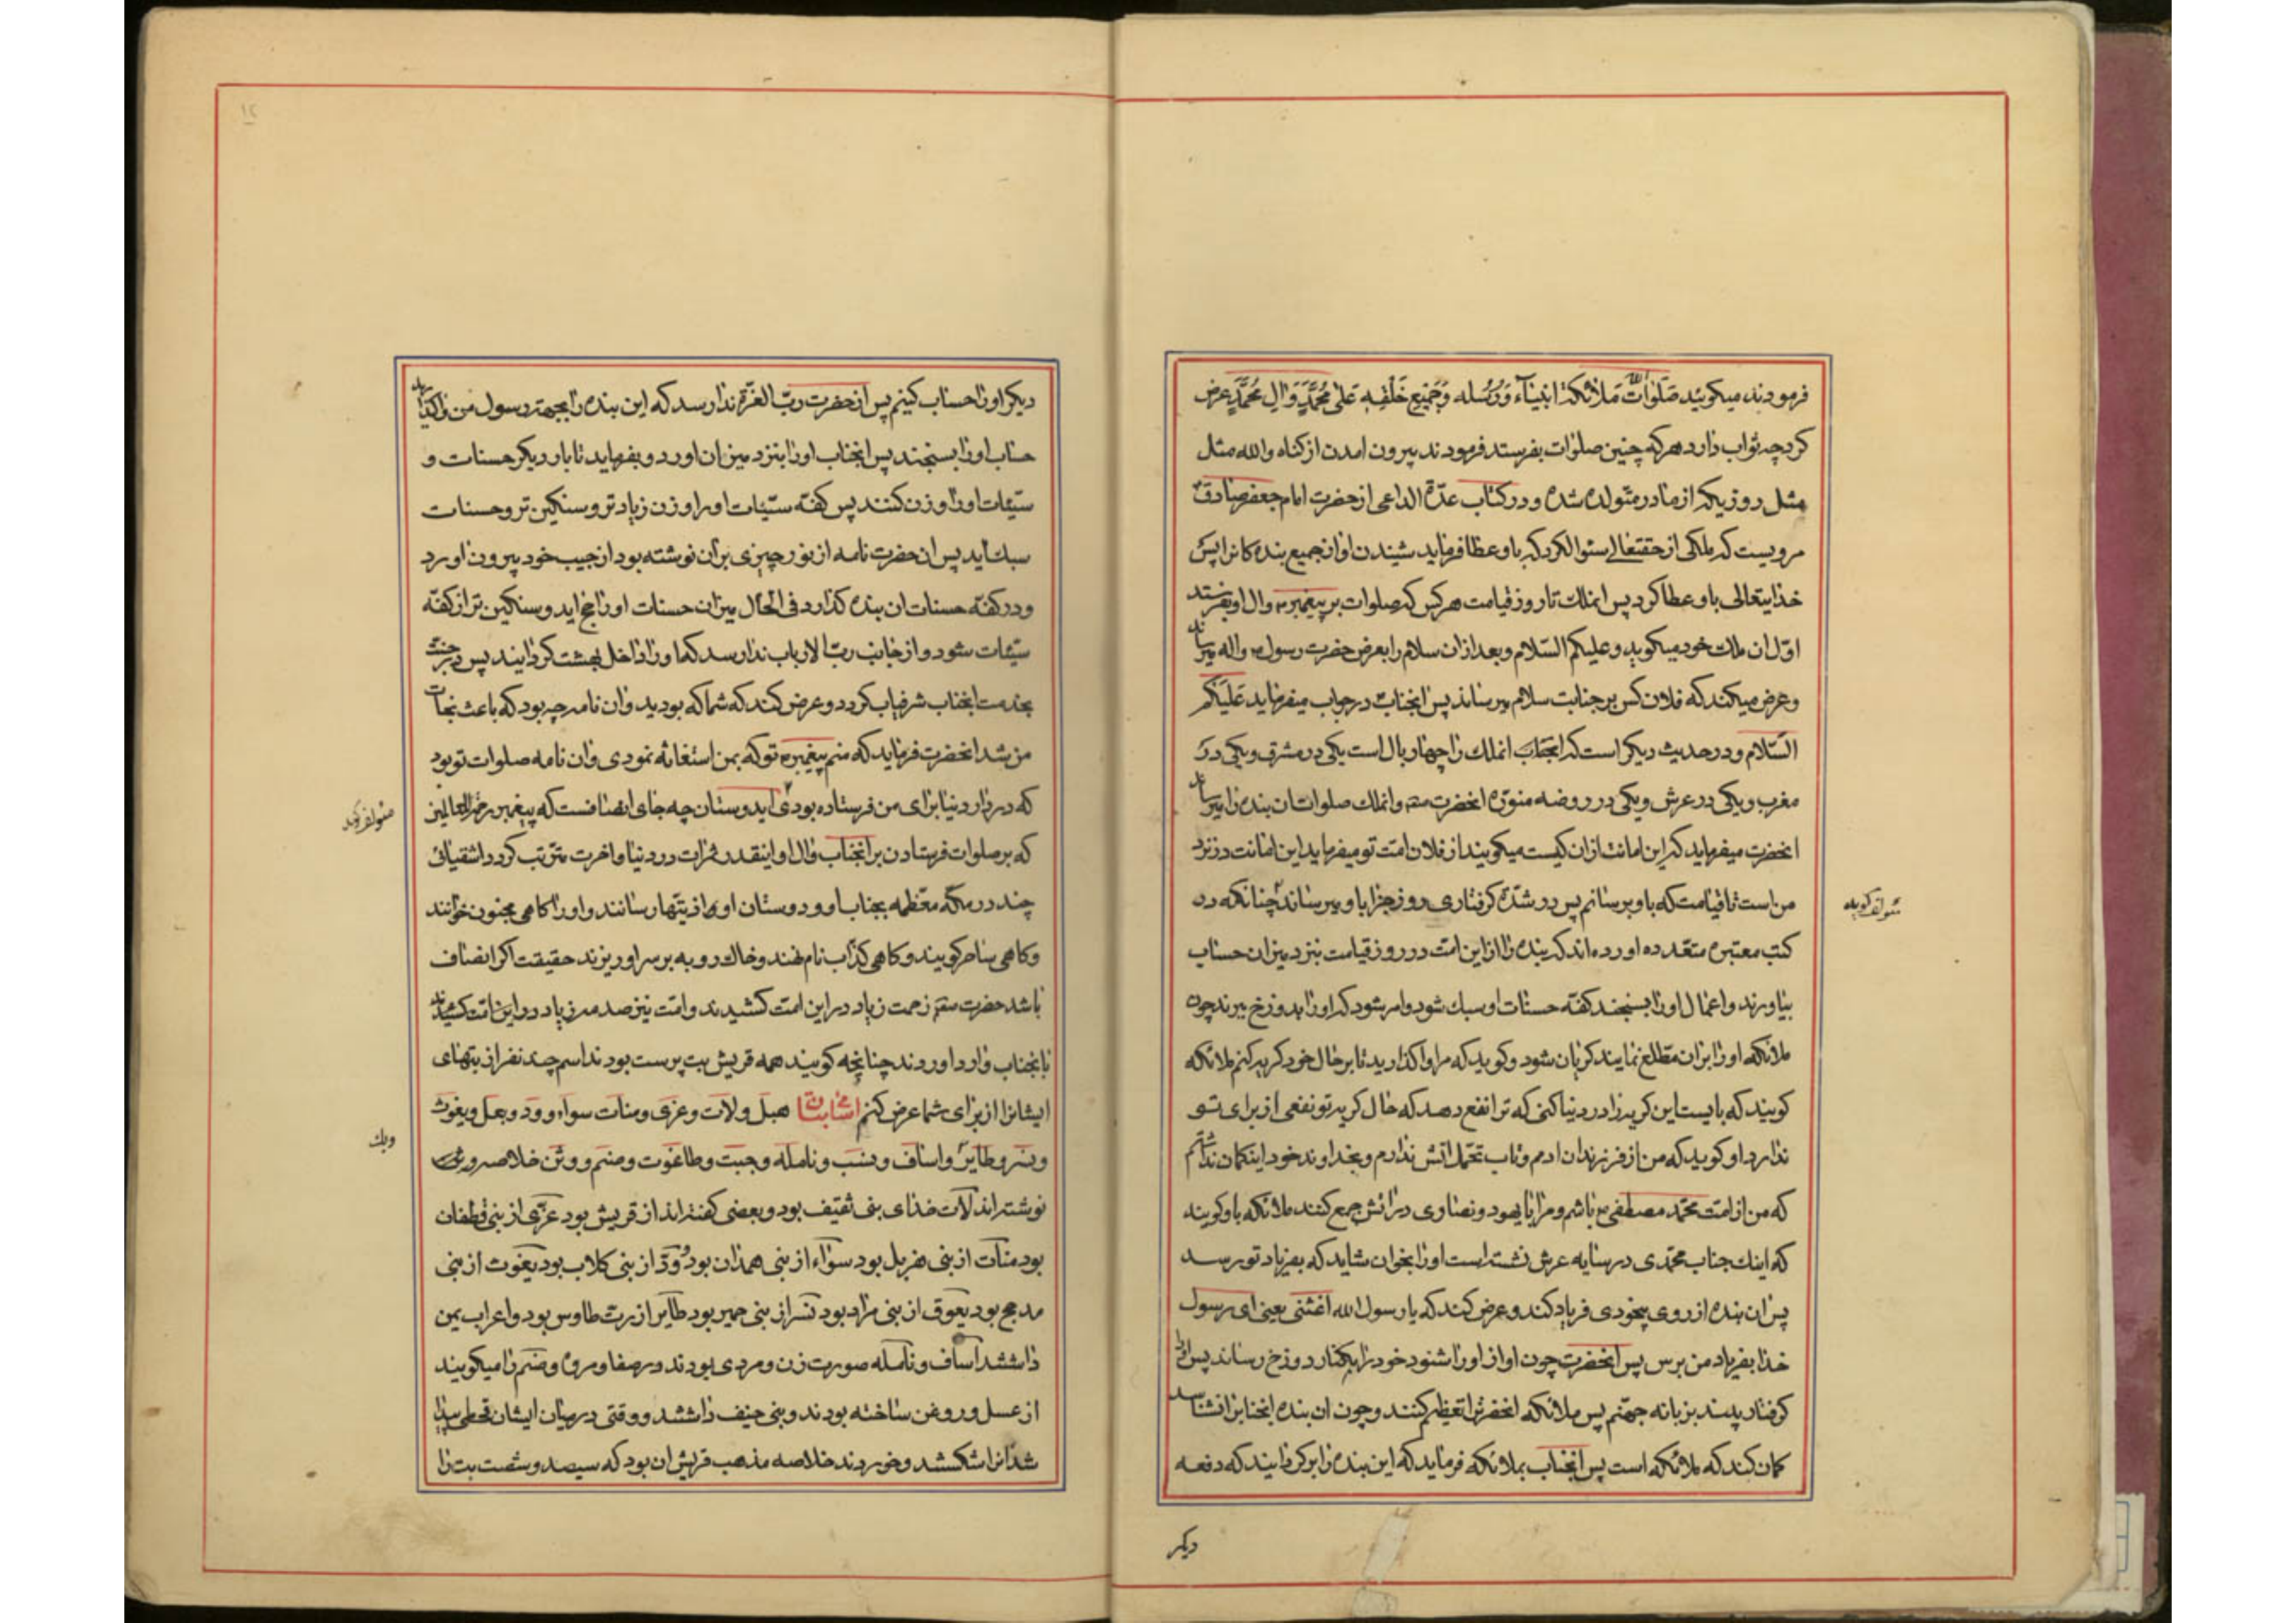 فرمودند میکوئید صَلَوٰاتُ اللّه مَلائکته انبیٰآءَ وَرُسُله وَجَمیٖعِ خَلْقِهِ عَلیٰ مُحَمَّدٍ وَاٰلِ مُحَمَّدٍ عرض
کرد چه ثواب دارد هر که چنین صلوات بفرستد فرمودند بیرون امدن از کناه والله مثل
مثل روزیکه از مادر متولد شده ودر کتاب عدّة الداعی از حضرت امام جعفر صادق
مرویست که ملکی از حقتعالی سئوال کرد که باو عطا فرماید شنیدن اواز جمیع بنده کانرا پس
خدایتعالی باو عطا کرد پس انملك تا روز قیامت هر کس که صلوات بر پیغمبر وال او بفرستد
اوّل ان ملك خود میکوید وعلیکم السّلام وبعد ازان سلام را بعرض حضرت رسول واله میرساند
وعرض میکند که فلان کس بر جنابت سلام میرساند پس انجناب در جواب میفرماید عَلَیْکُم
السَّلام ودر حدیث دیکر است که انملك را چهار بال است یکی در مشرق ویکی در
مغرب ویکی در عرش ویکی در روضه منوّره انحضرت وانملك صلوات ان بنده را میرساند
انحضرت میفرماید که این امانت ازان کیست میکویند از فلان امت تو میفرماید این امانت در نزد
من است تا قیامت که باو برسانم پس در شدّة کرفتاری روز جزا باو میرساند چنانکه در
کتب معتبره متعدده اورده اند که بنده را از این امت در روز قیامت بنزد میزان حساب
بیاورند واعمال اورا بسنجند کفّه حسنات او سبك شود وامر شود که اورا بدوزخ برند چون
ملائکه اورا بران مطلع نمایند کریان شود وکوید که مرا واکذارید تا بر حال خود کریه کنم ملائکه
کویند که بایست این کریه را در دنیا کنی که ترا نفع دهد که حال کریه تو نفعی از برای تو
ندارد او کوید که من از فرزندان ادم وتاب تحمّل اتش ندارم وبخداوند خود اینکمان نداشتم
که من از امت محمّد مصطفی باشم ومرا با یهود ونصاری در اتش جمع کنند ملائکه باو کویند
که اینك جناب محمّدی در سایه عرش نشسته است اورا بخوان شاید که بفریاد تو رسد
پس ان بنده از روی بیخودی فریاد کند وعرض کند که یا رسول الله اغثنی یعنی ای رسول
خدا بفریاد من برس پس انحضرت چون اواز اورا شنود خود را بکنار دوزخ رساند پس اورا
کرفتار بیند بزبانه جهنّم پس ملائکه انحضرترا تعظیم کنند وچون ان بنده انجنابرا نشناسد
کمان کند که ملائکه است پس انجناب بملائکه فرماید که این بنده را برکردانید که دفعه
دیکر
مئولف کوید
۱۲
دیکر اورا حساب کنیم پس از حضرت ربّ العزّة ندا رسد که این بنده را بجهت رسول من واکذارید
حساب اورا بسنجند پس انجناب اورا بنزد میزان اورد وبفرماید تا بار دیکر حسنات و
سیّئات اورا وزن کنند پس کفّه سیّئات اورا وزن زیاد تر وسنکین تر وحسنات
سبك اید پس ان حضرت نامه از نور چیزی بران نوشته بود از جیب خود بیرون اورد
ودر کفّه حسنات ان بنده کذارد فی الحال میزان حسنات او راجح اید وسنکین تر از کفّه
سیّئات شود واز جانب ربّ الارباب ندا رسد که اورا داخل بهشت کردانید پس در جنت
بخدمت انجناب شرفیاب کردد وعرض کند که شما که بودید وان نامه چه بود که باعث نجات
من شد انحضرت فرماید که منم پیغمبر تو که بمن استغاثه نمودی وان نامه صلوات تو بود
که در دار دنیا برای من فرستاده بودی ایدوستان چه جای انصافست که پیغمبر رحمة للعالمین
که بر صلوات فرستادن بر انجناب وال او اینقدر ثمرات در دنیا واخرت مترتب کردد اشقیائی
چند در مکّه معظمه بجناب او ودوستان او اذیّتها رسانند واورا کاهی مجنون خوانند
وکاهی ساحر کویند وکاهی کذّاب نام نهند وخاك روبه بر سر او ریزند حقیقت اکر انصاف
باشد حضرت زحمت زیاد در این امت کشیدند وامّت نیز صدمه زیاد
بانجناب وارد اوردند چنانچه کویند همه قریش بت پرست بودند اسم چند نفر از بتهای
ایشانرا از برای شما عرض کنم هبل ولات وعزی ومنات سواء وود وبعل ویغوث
ونسر وطایر واساف ونسب ونامله وجبت وطاغوت وصنم ووثن خلاصه
نوشته اند لات خدای بنی ثقیف بود وبعضی کفته اند از قریش بود عزّی از بنی قطفان
بود منات از بنی هزیل بود سواء از بنی همدان بود ودّ از بنی کلاب بود یغوث از بنی
مدحج بود یعوق از بنی مراد بود نسر از بنی حمیر بود طایر از طاوس بود واعراب یمن
داشتند اساف ونامله صورت زن ومردی بودند در صفا ومروه وصنم را میکویند
از عسل وروغن ساخته بودند وبنی حنیف داشتند ووقتی در میان ایشان قحطی پیدا
شد انرا شکستند وخوردند خلاصه مذهب قریش ان بود که سیصد وشصت بت را
مئولف کوید